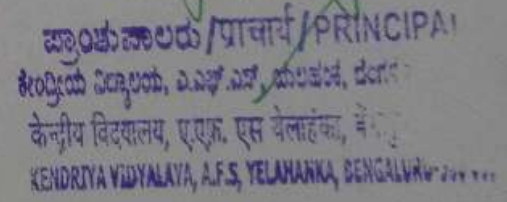 ಪ್ರಾಂಶುಪಾಲರು /प्राचार्य /PRINCIPAL
ಕೇಂದ್ರೀಯ ವಿದ್ಯಾಲಯ, ಎ.ಎಫ್.ಎಸ್, ಯಲಹಂಕ,
केन्द्रीय विद्यालय, ए.एफ़. एस येलाहंका,
KENDRIYA VIDYALAYA, A.F.S, YELAHANKA, BENGALURU